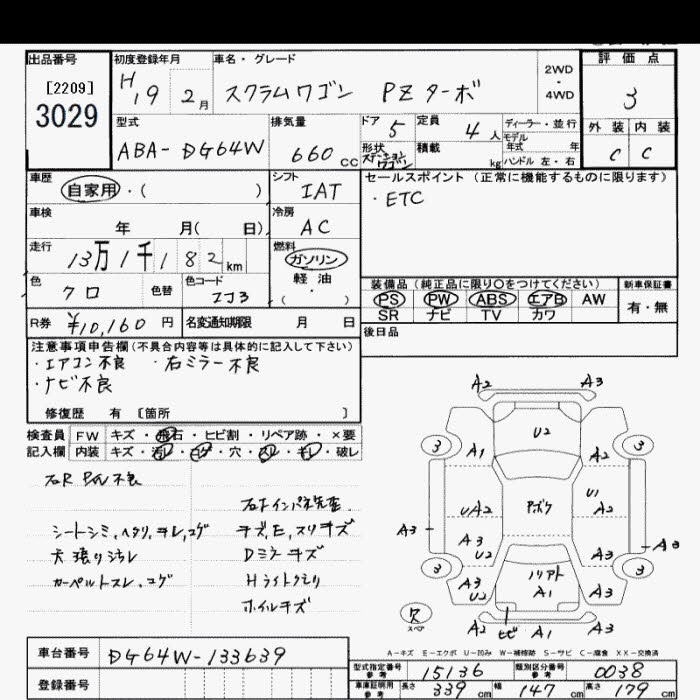 出品番号 初度登録年月 車名・グレード 評価点
[2209] H19 2月 スクラムワゴン PZターボ 2WD・4WD 3
3029 型式 排気量 ドア 5 定員 4人 ディーラー・並行 外装 内装
ABA-DG64W 660cc 形状 ステーションワゴン 積載 kg モデル年式 年 ハンドル 左・右 C C
車歴 自家用・( ) シフト IAT セールスポイント (正常に機能するものに限ります)
車検 年 月( 日) 冷房 AC ・ETC
走行 13万1千182km 燃料 ガソリン・軽油・( )
色 クロ 色替 色コード ZJ3 装備品(純正品に限り○をつけてください) 新車保証書
PS PW ABS エアB AW 有・無
SR ナビ TV カワ
R券 ¥10,160円 名変通知期限 月 日 後日品
注意事項申告欄(不具合内容等は具体的に記入して下さい)
・エアコン不良 ・右ミラー不良
・ナビ不良
修復歴 有 [箇所 ]
検査員 FW キズ・飛石・ヒビ割・リペア跡・×要
記入欄 内装 キズ・汚レ・コゲ・穴・スレ・キレ・破レ
右R P/W不良
シートシミ、ヘタリ、キレ、コゲ キズ、E、スリキズ
天張り汚レ Dミラーキズ
カーペルトスレ、コゲ Hライトクモリ
ホイルキズ
A2 A3
U2
3 3
A1 A2
UA2 Aボケ U1 A2
A3 A3 A3
A3 U2
3 3
A3 U2 A1 A3
欠 スペア A2 ヒビ A1 A3
A-キズ E-エクボ U-凹み W-補修跡 S-サビ C-腐食 XX-交換済
車台番号 DG64W-133639
型式指定番号 参考 15136 類別区分番号 参考 0038
登録番号 車庫証明用 参考 長さ 339cm 幅 147cm 高さ 179cm